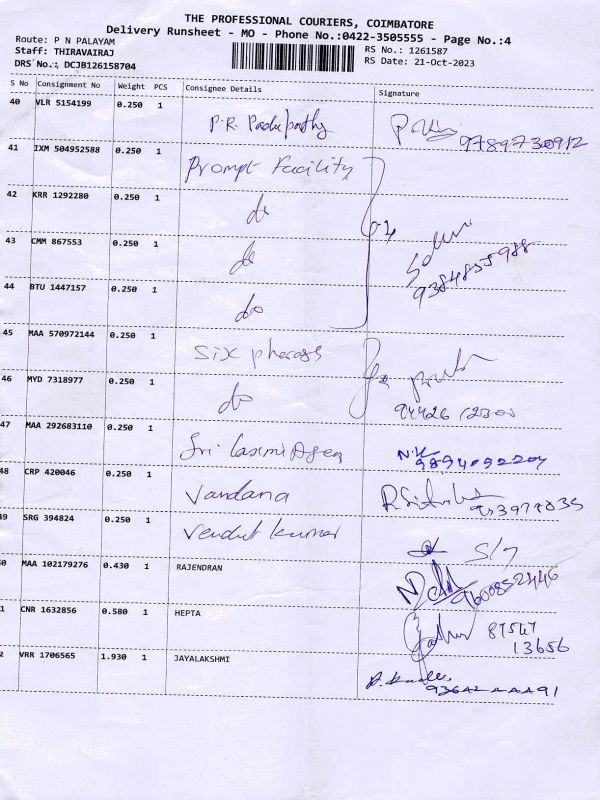 THE PROFESSIONAL COURIERS, COIMBATORE
Delivery Runsheet - MO - Phone No.:0422-3505555 - Page No.:4
Route: P N PALAYAM
RS No.: 1261587
Staff: THIRAVAIRAJ
RS Date: 21-Oct-2023
DRS No.: DCJB126158704
S No Consignment No Weight PCS Consignee Details Signature
40 VLR 5154199 0.250 1
9789730912
41 IXM 504952588 0.250 1 Prompt Facility
42 KRR 1292280 0.250 1 do
43 CMM 867553 0.250 1 do
9384855988
44 BTU 1447157 0.250 1 do
45 MAA 570972144 0.250 1 Six
46 MYD 7318977 0.250 1 do
47 MAA 292683110 0.250 1 Sri Laxmi Agen
9894092204
48 CRP 420046 0.250 1 Vandana
49 SRG 394824 0.250 1 kumar
0 MAA 102179276 0.430 1 RAJENDRAN
9600852446
1 CNR 1632856 0.580 1 HEPTA
87547
13656
2 VRR 1706565 1.930 1 JAYALAKSHMI